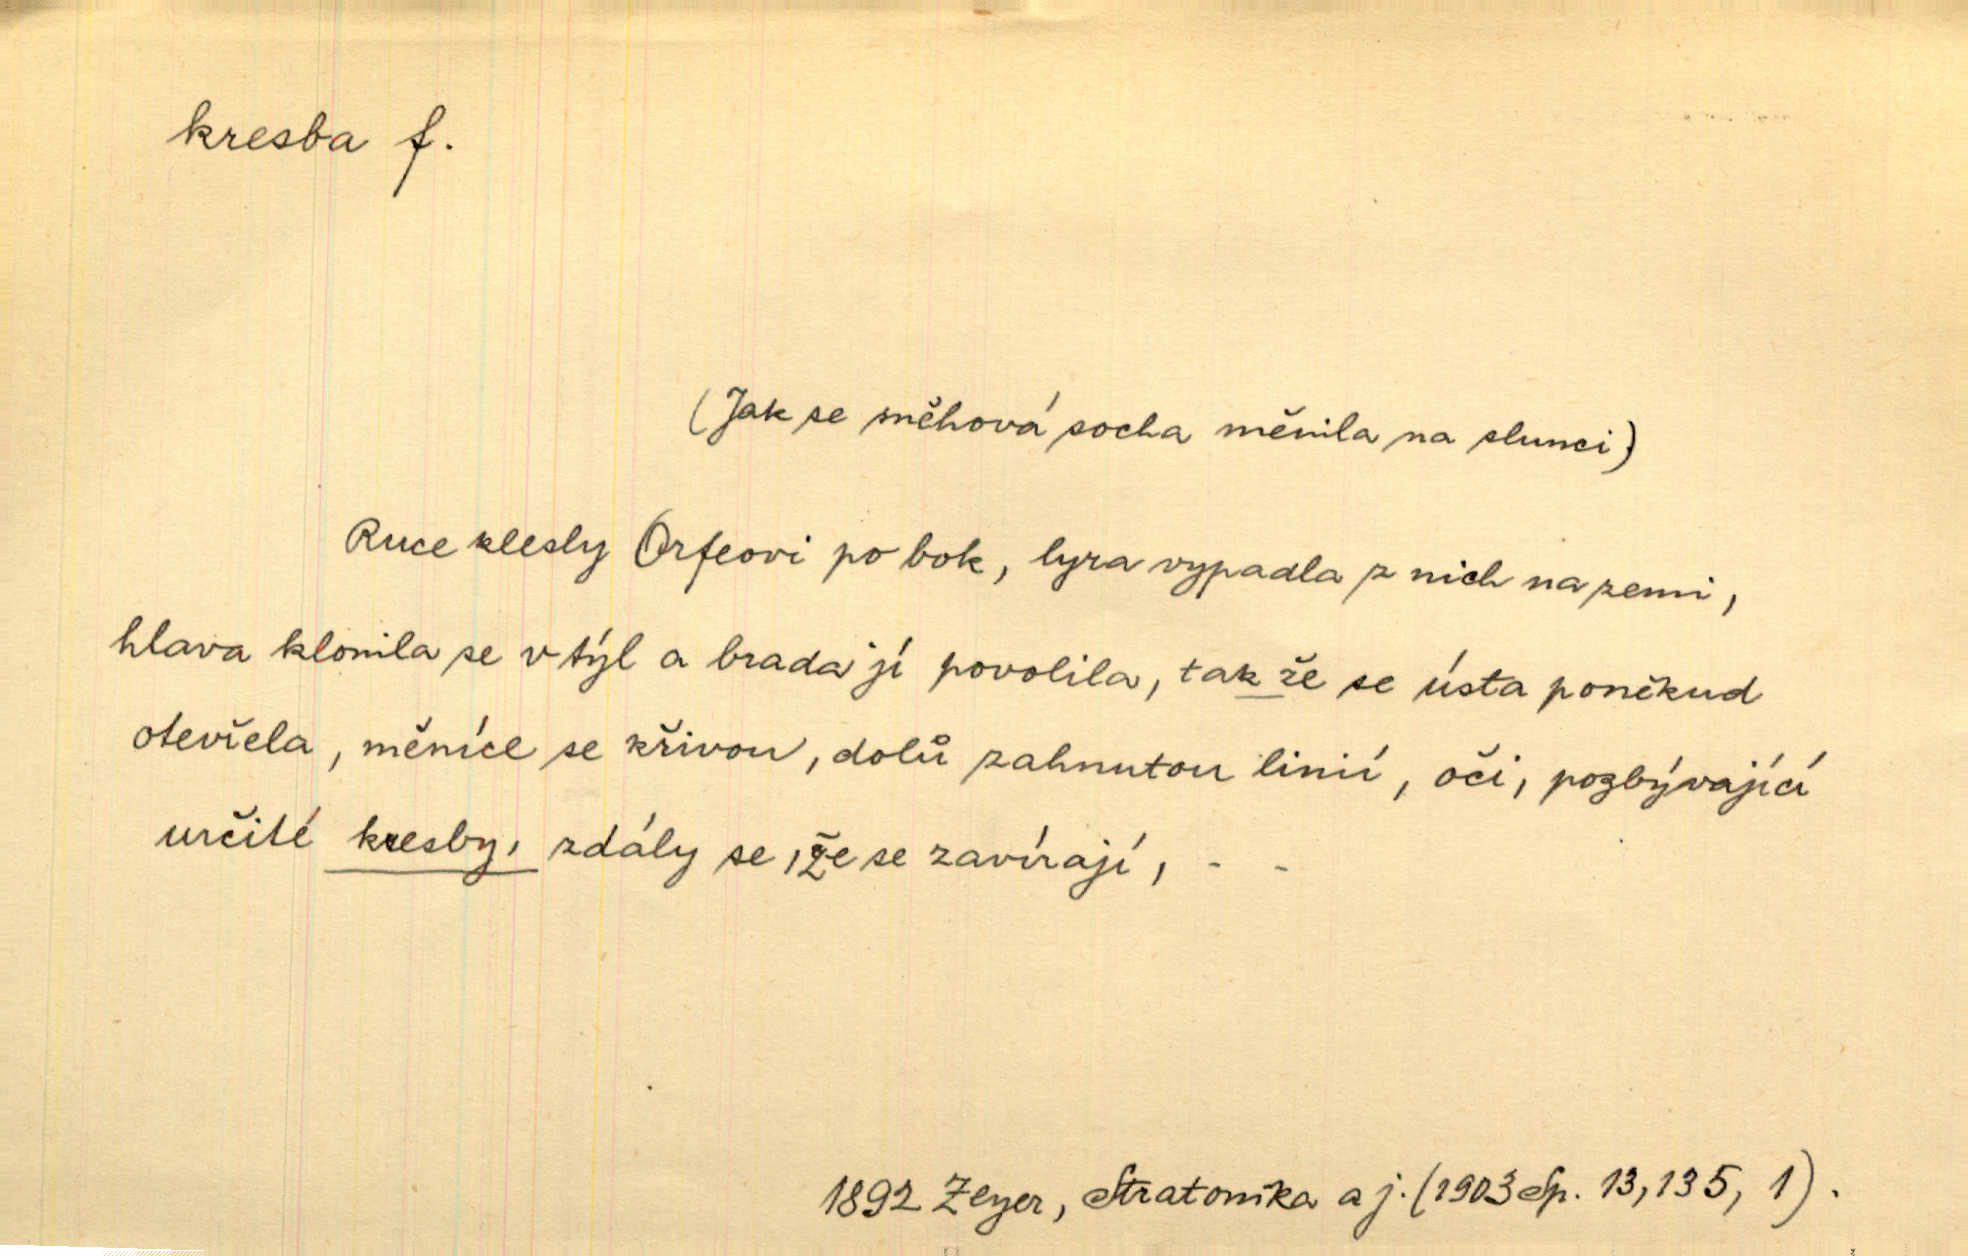 kresba f.
(Jak se sněhová socha měnila na slunci)
Ruce klesly Orfeovi po bok, lyra vypadla z nich na zemi,
hlava klonila se v týl a brada jí povolila, tak že se ústa poněkud
otevřela, měníce se křivou, dolů zahnutou linií, oči, pozbývající
určité kresby, zdály se, že se zavírají, - -
1892 Zeyer, Stratonika a j. (1903 Sp. 13, 135, 1).